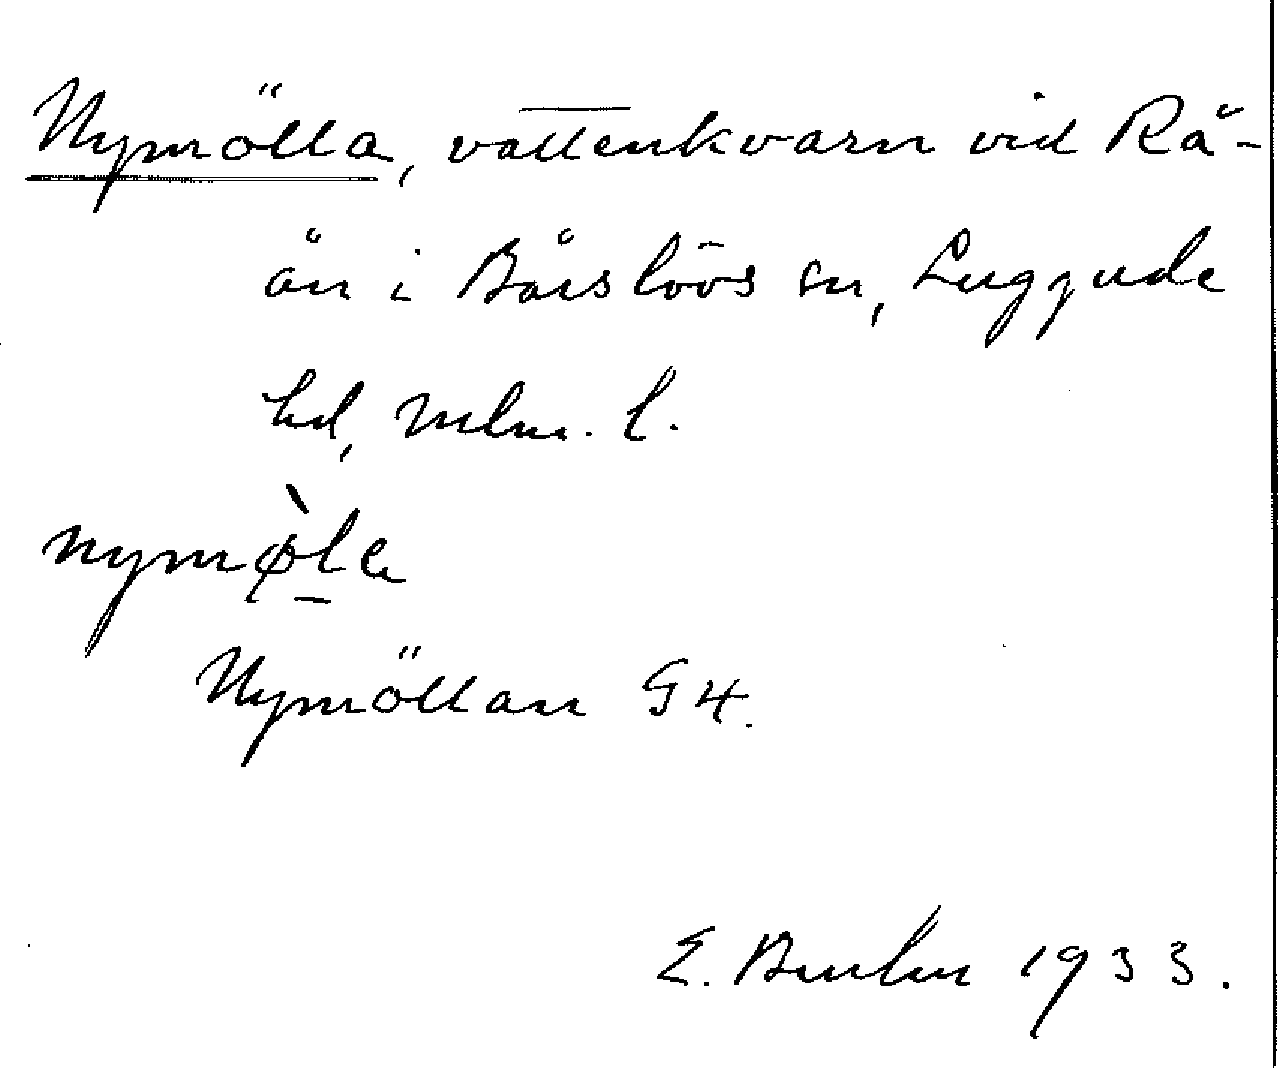 Nymölla, vattenkvarn vid Rå-
ån i Bårslövs sn, Luggude
hd, Mlm. l.
nymø̀la
Nymöllan G4.
E. 1933.